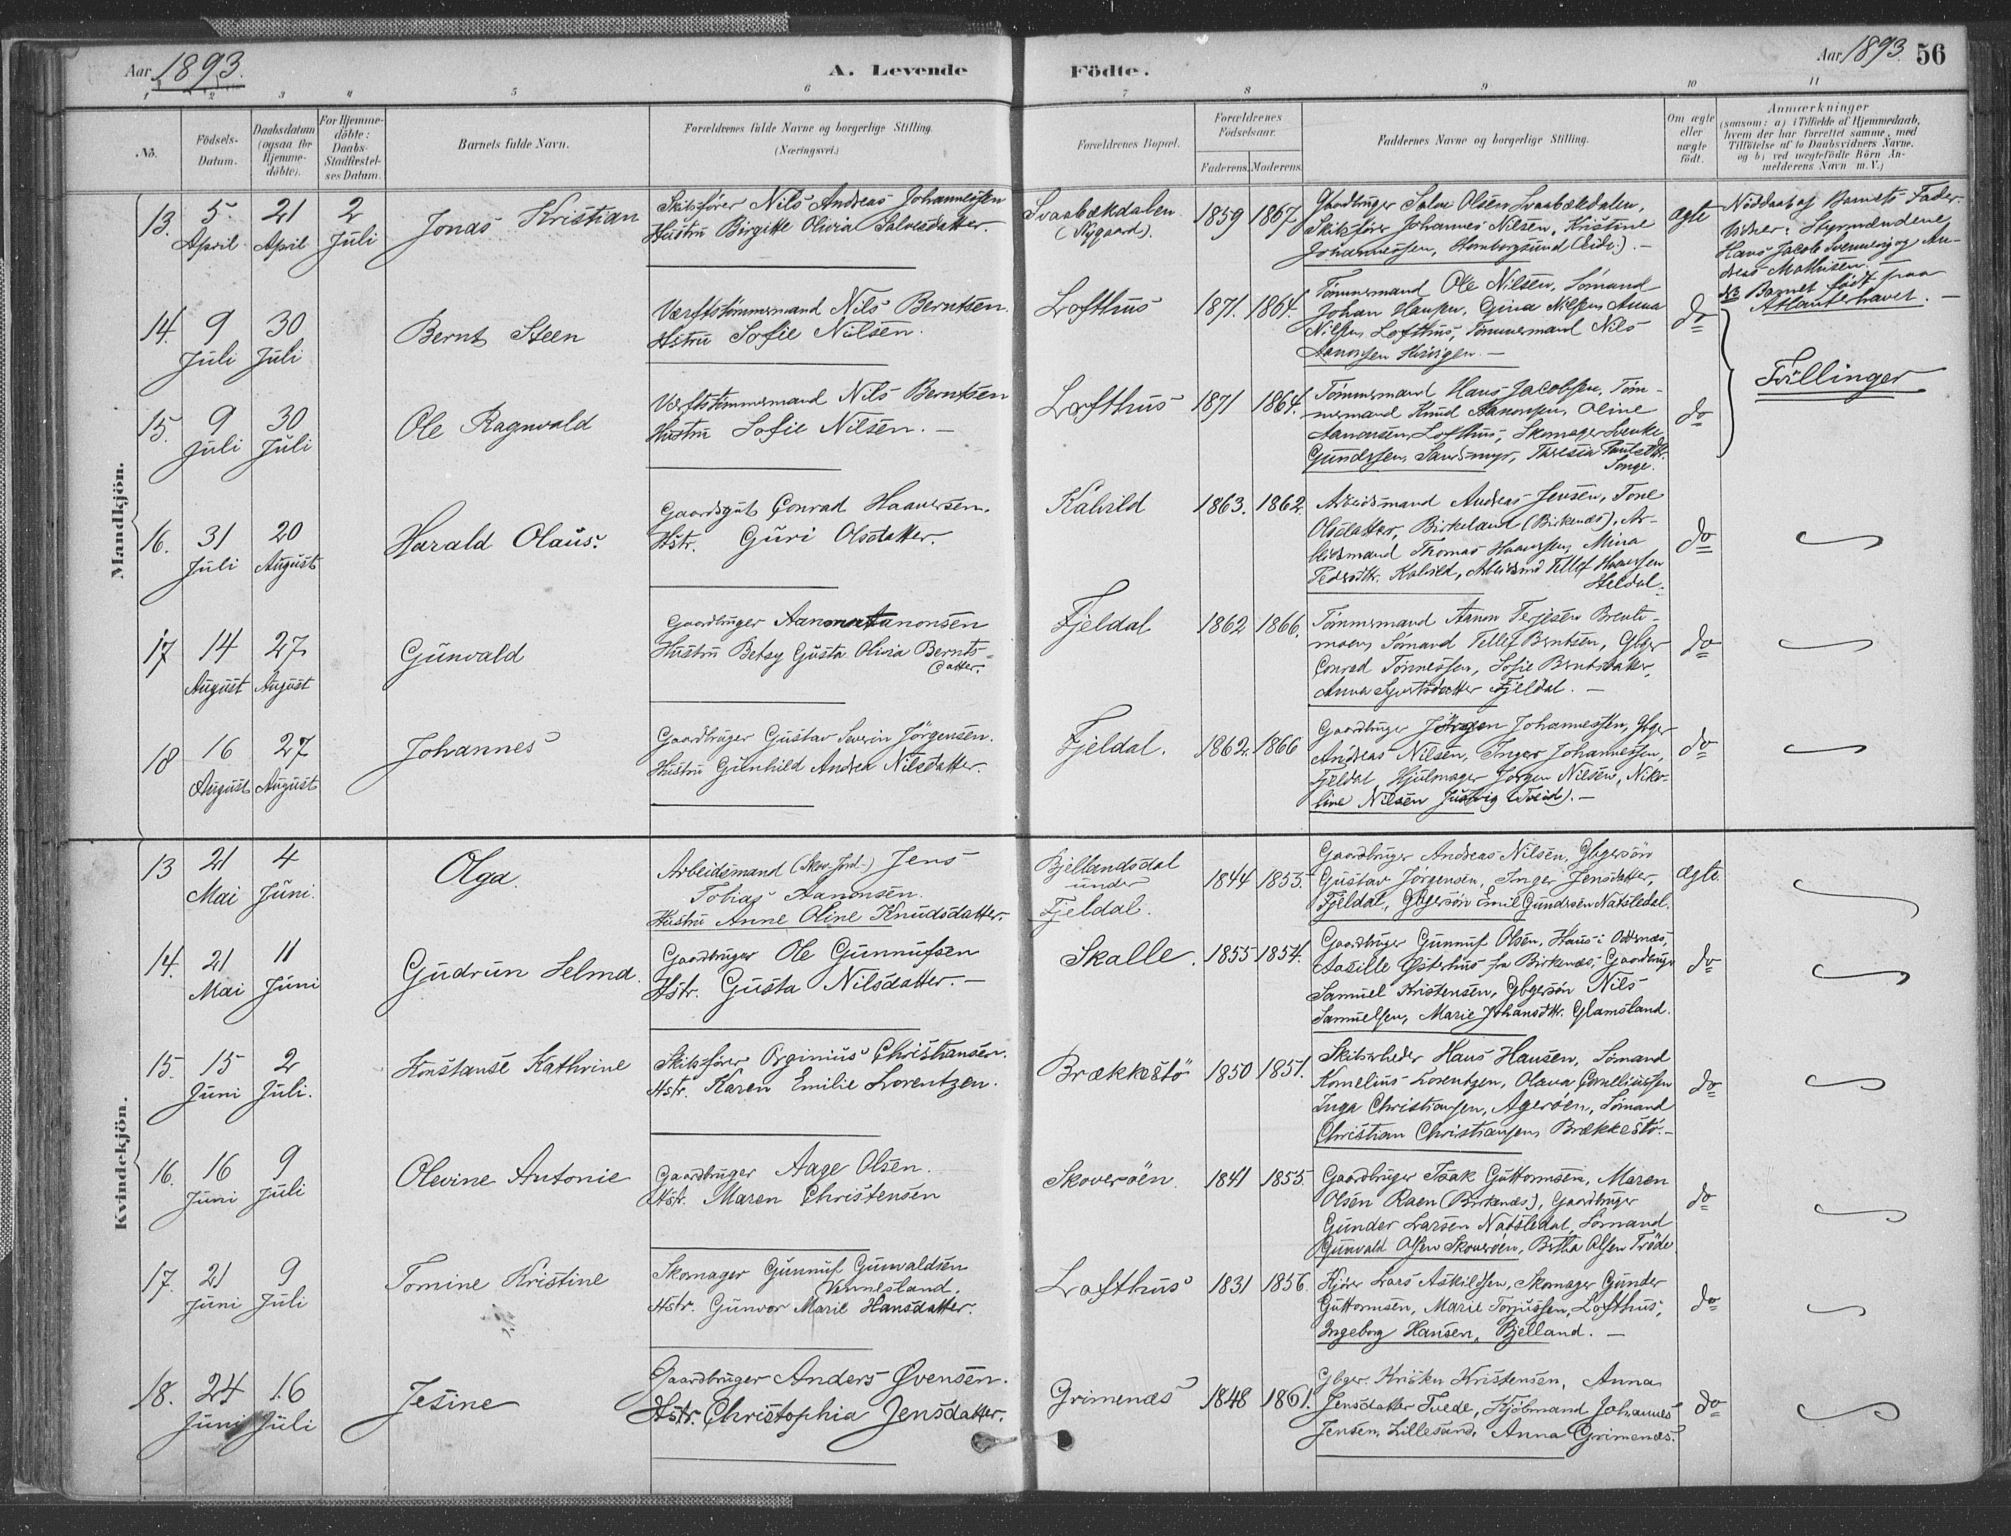 Aar 1893.
A. Levende
Födte.
Aar 1893. 56
1 2 3 4 5 6 7 8 9 10 11
No.
Födsels-
Datum.
Daabsdatum
(ogsaa för
Hjemme-
döbte).
For Hjemme-
döbte:
Daabs-
Stadfæstel-
ses Datum.
Barnets fulde Navn.
Forældrenes fulde Navne og borgerlige Stilling.
(Næringsvei.)
Forældrenes Bopæl.
Forældrenes
Födselsaar.
Faderens. Moderens.
Faddernes Navne og borgerlige Stilling.
Om ægte
eller
uægte
födt.
Anmærkninger
(saasom: a) i Tilfælde af Hjemmedaab,
hvem der har forrettet samme, med
Tilföielse af to Daabsvidners Navne.
og b) ved uægtefödte Börn An-
melderens Navn m.V.)
Mandkjön.
13. 5. April 21 April 2 Juli
Jonas Kristian
Skibsfører Nils Andreas Johannessen
Hustru Birgitte Olivia Salvesdatter.
Svaabækdalen
(Nygaard).
1859 1867
Gaardbruger Salve Olsen, Svaabækdalen,
Skibsfører Johannes Nilsen, Kristine
Johannessen, Homborgsund (Eide). —
ægte
Nöddaab af Barnets Fader.
Vidner: Styrmændene
Hans Jacob Svennevig og An-
dreas Mathisen. —
NB Barnet födt paa
Atlanterhavet. —
14. 9 Juli 30 Juli
Bernt Steen
Værftstömmermand Nils Berntsen.
Hstru Sofie Nilsen.
Lofthus
1871. 1864.
Tömmermand Ole Nilsen, Sömand
Johan Hansen, Gina Nilsen, Anna
Nilsen, Lofthus, Tömmermand Nils
Aanonsen
do
Tvillinger
15. 9 Juli 30 Juli
Ole Ragnvald
Værftstömmermand Nils Berntsen
Hustru Sofie Nilsen. —
Lofthus
1871 1864.
Tömmermand Hans Jacobsen, Töm-
mermand Knud Aanonsen, Oline
Aanonsen, Lofthus, Skomager Svenke
Gundersen, Sandsmyr, Theresia Paulsdtr.
Songe.
do
16. 31 Juli 20 August
Harald Olaus.
Gaardsgut Conrad Haaversen.
Hstr. Guri Olsdatter.
Kalvild
1863. 1862.
Arbeidsmand Andreas Jensen, Tone
Olsdatter, Birkeland (Birkenæs), Ar-
beidsmand Thomas Haaversen, Mina
Pedersdtr. Kalvild, Arbeidsmd Tellef Haaversen
Heldal.
do
17 14 August 27 August
Gunvald
Gaardbruger Aanon Aanonsen
Hustru Betsy Gusta Olivia Bernts-
datter.
Fjeldal
1862 1866.
Tömmermand Aanon Terjesen Breti-
moen, Sömand Tellef Berntsen, Gbger
Conrad Tönnessen, Sofie Berntsdatter,
Anna Syvertsdatter Fjeldal. —
do
18 16 August 27 August
Johannes
Gaardbruger Gustav Severin Jörgensen.
Hustru Gunhild Andrea Nilsdatter.
Fjeldal.
1862. 1866
Gaardbruger Jörgen Johannessen, Gbger
Andreas Nilsen, Inger Johannessen,
Fjeldal, Hjulmager Jörgen Nilsen, Niko-
line Nilsen Justvig (Tveid). —
do
Kvindekjön.
13 21 Mai 4 Juni.
Olga.
Arbeidsmand (Skov-Jord-) Jens
Tobias Aanonsen.
Hustru Anne Oline Knudsdatter.
Bjellandsdal
under
Fjeldal.
1844 1853.
Gaardbruger Andreas Nilsen, Gbgersön
Gustav Jörgensen, Inger Jensdatter,
Fjeldal, Gbgersön Emil Gundersen Natsledal.
ægte
14. 21 Mai 11 Juni
Gudrun Selma.
Gaardbruger Ole Gunnufsen
Hstr. Gusta Nilsdatter. —
Skalle.
1855 1854.
Gaardbruger Gunnuf Olsen, Hans i Oddernæs,
Aasille Österhus fra Birkenæs, Gaardbruger
Samuel Kristensen, Gbgersön Nils
Samuelsen, Marie Johansdtr. Glamsland.
do
15. 15 Juni 2 Juli.
Konstanse Kathrine
Skibsfører Orginius Christiansen.
Hstr. Karen Emilie Lorentzen.
Brækkestö
1850 1851.
Skibsrheder Hans Hansen, Sömand
Kornelius Lorentzen, Olava Corneliussen
Inga Christiansen, Ageröen, Sömand
Christian Christiansen, Brækkestö. —
do
16. 16 Juni 9 Juli
Olevine Antonie
Gaardbruger Aage Olsen.
Hstr. Maren Christensen
Skoveröen.
1841 1855.
Gaardbruger Isak Guttormsen, Maren
Olsen Raen (Birkenæs), Gaardbruger
Gunder Larsen Natsledal, Sömand
Gunvald Olsen Skoveröen, Bertha Olsen Tröde
do
17. 21 Juni 9 Juli
Tomine Kristine
Skomager Gunnuf Gunvaldsen
Vennesland.
Hstr. Gunvor Marie Hansdatter.
Lofthus
1831 1856.
Hjörer Lars Askildsen, Skomager Gunder
Guttormsen, Marie Torjussen, Lofthus,
Ingeborg Hansen, Bjelland. —
do
18. 24 Juni 16 Juli
Jesine
Gaardbruger Anders Övensen.
Hstr. Christophia Jensdatter.
Grimenæs
1848 1861.
Gbger. Kristen Kristensen, Anna
Jensdatter Tvede, Kjöbmand Johannes
Jensen, Lillesand, Anna Grimenæs.
do